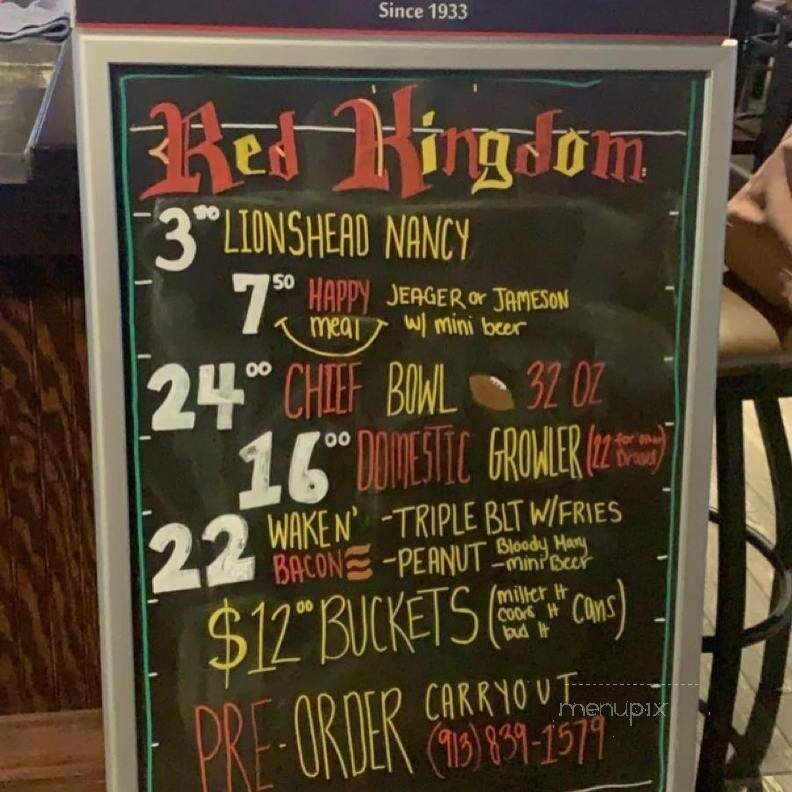 Since 1933
Red Kingdom
3.50 LIONSHEAD NANCY
7 50 HAPPY meal JEAGER or JAMESON
w/ mini beer
24 00 CHIEF BOWL 32 OZ
16 00 DOMESTIC GROWLER (22 for other
Draws)
22 WAKE N' BACON -TRIPLE BLT W/FRIES
-PEANUT Bloody Mary
-mini Beer
$12.00 BUCKETS (miller lt
coors lt
bud lt cans)
PRE-ORDER CARRYOUT
(913) 839-1579
menupix